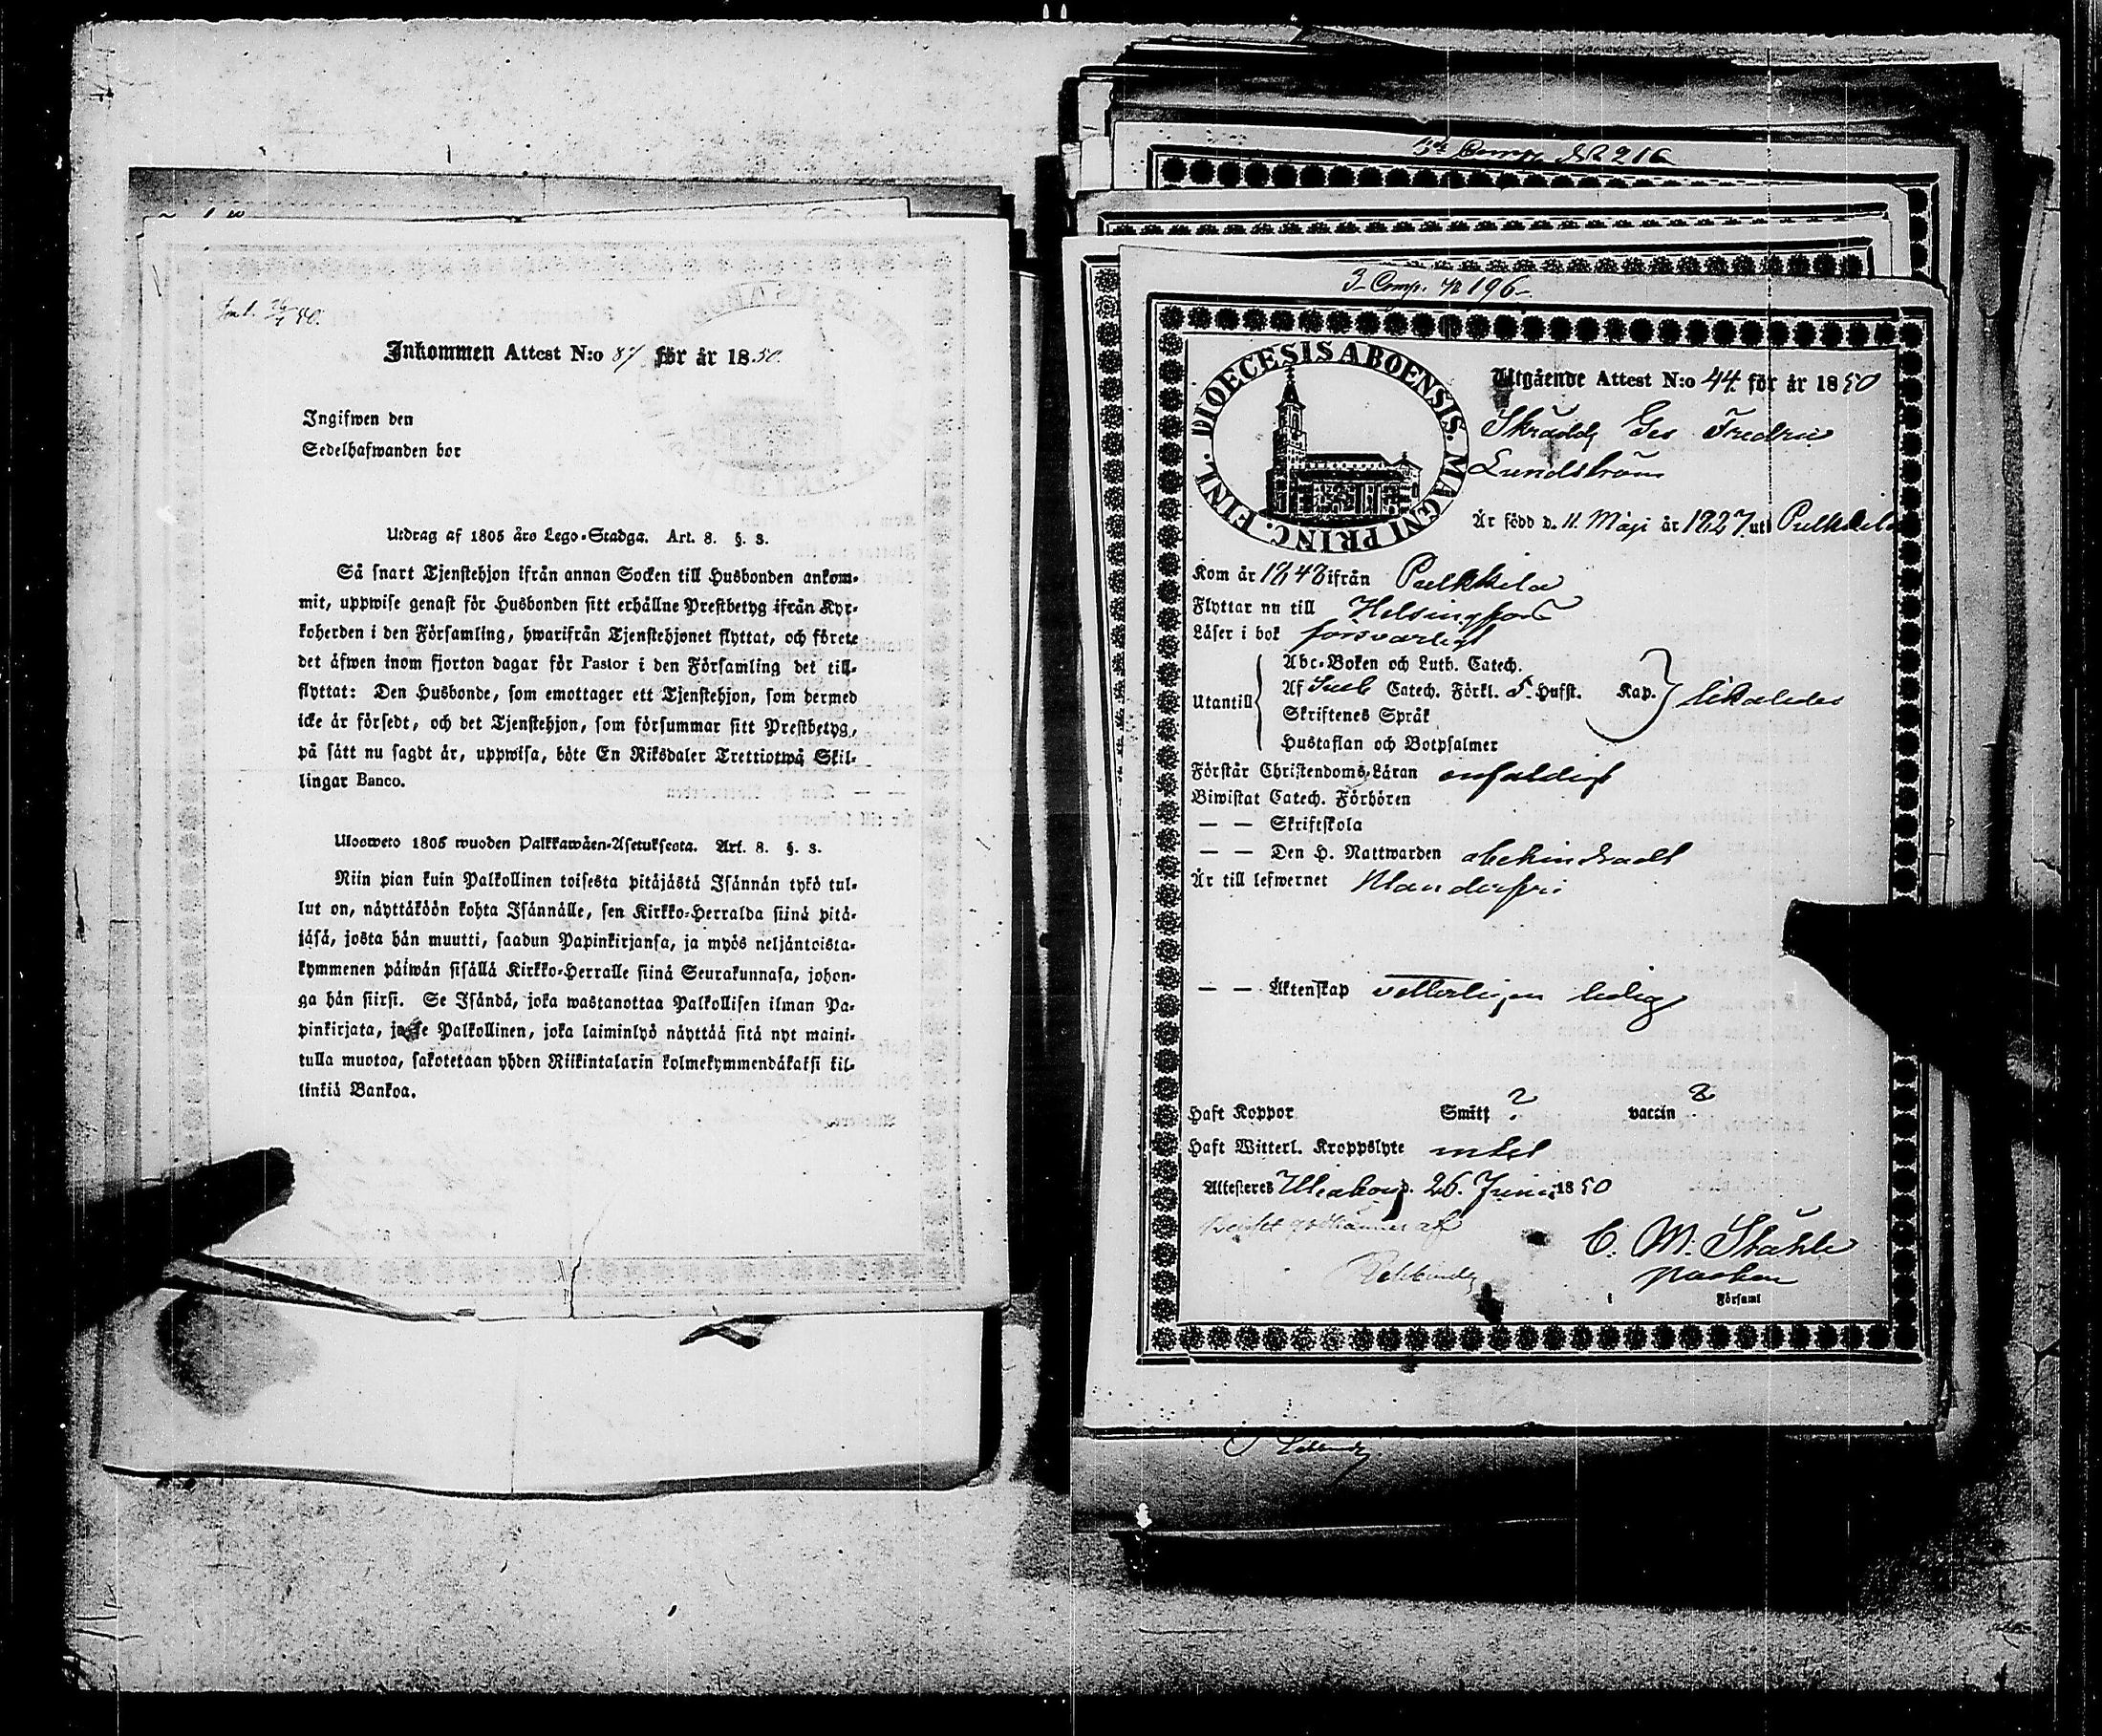 Inkommen Attest N:o 87 för år 1850.
Ingifwen den
Sedelhafwanden bor
Utdrag af 1805 års Lego-Stadga. Art. 8. §. 3.
Så snart Tjenstehjon ifrån annan Socken till Husbonden ankom-
mit, uppwise genast för Husbonden sitt erhållne Prestbetyg ifrån Kyr-
koherden i den Församling, hwarifrån Tjenstehjonet flyttat, och förete
det äfwen inom fjorton dagar för Pastor i den Församling det till-
flyttat: Den Husbonde, som emottager ett Tjenstehjon, som dermed
icke är försedt, och det Tjenstehjon, som försummar sitt Prestbetyg,
på sätt nu sagdt är, uppwisa, böte En Riksdaler Trettiotwå Skil-
lingar Banco.
Ulosweto 1805 wuoden Palkkawäen-Asetuksesta. Art. 8. §. 3.
Niin pian kuin Palkollinen toisesta pitäjästä Isännän tykö tul-
lut on, näyttäköön kohta Isännälle, sen Kirkko-Herralda siinä pitä-
jäsä, josta hän muutti, saadun Papinkirjansa, ja myös neljäntoista-
kymmenen päiwän sisällä Kirkko-Herralle siinä Seurakunnasa, johon-
ga hän siirsi. Se Isändä, joka wastanottaa Palkollisen ilman Pa-
pinkirjata, ja se Palkollinen, joka laiminlyö näyttää sitä nyt maini-
tulla muotoa, sakotetaan yhden Riikintalarin kolmekymmendäkaksi kil-
linkiä Bankoa.
3 Comp. N 216
3 Comp. N 196
DIOECESIS ABOENSIS. MAGNI PRINC. FINL.
Utgående Attest N:o 44 för år 1850
Fredric
Lundström
Är född d. 11 Maji år 1827 uti Pulkkila
Kom år 1848 ifrån Pulkkila
Flyttar nu till Helsingfors
Läser i bok försvarligt
Utantill
Abc-Boken och Luth. Catech.
Af Catech. Förkl. 5 Hufst. Kap. likaledes
Skriftenes Språk
Hustaflan och Botpsalmer
Förstår Christendoms-Läran enfaldigt
Biwistat Catech. Förhören
— — Skriftskola
— — Den H. Nattwarden obehindradt
Är till lefwernet klanderfri
— — Äktenskap vetterligen ledig
Haft Koppor Smitt ? vaccin ?
Haft Witterl. Kroppslyte intet
Attesteres Uleaborg d. 26. Junii 1850
C. W. Ståhle
pastor
i Församl